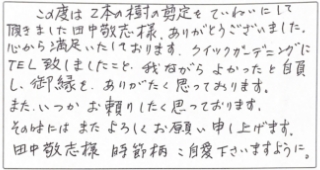 この度は2本の樹の剪定をていねいにして
頂きました田中敬志様、ありがとうございました。
心から満足いたしております。クイックガーデニングに
TEL致しましたこと、我ながらよかったと自負
し、御縁を、ありがたく思っております。
また、いつかお頼りしたく思っております。
その時には またよろしくお願い申し上げます。
田中敬志様 時節柄ご自愛下さいますように。